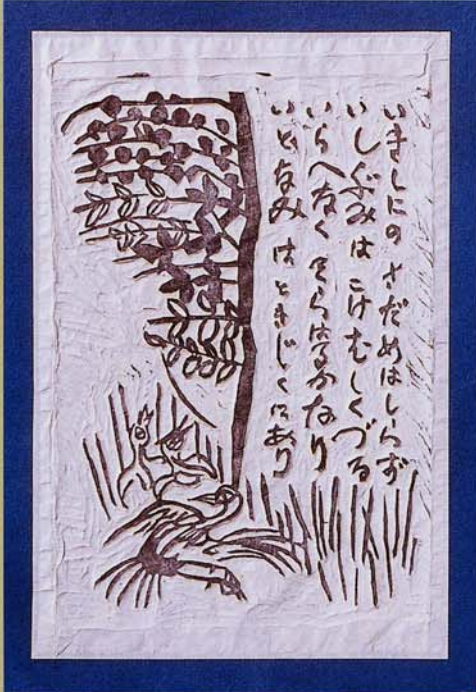 いきしにの さだめはしらず
いしぶみは こけむしくづる
いらへなく そらはるかなり
いとなみ はときじくにあり